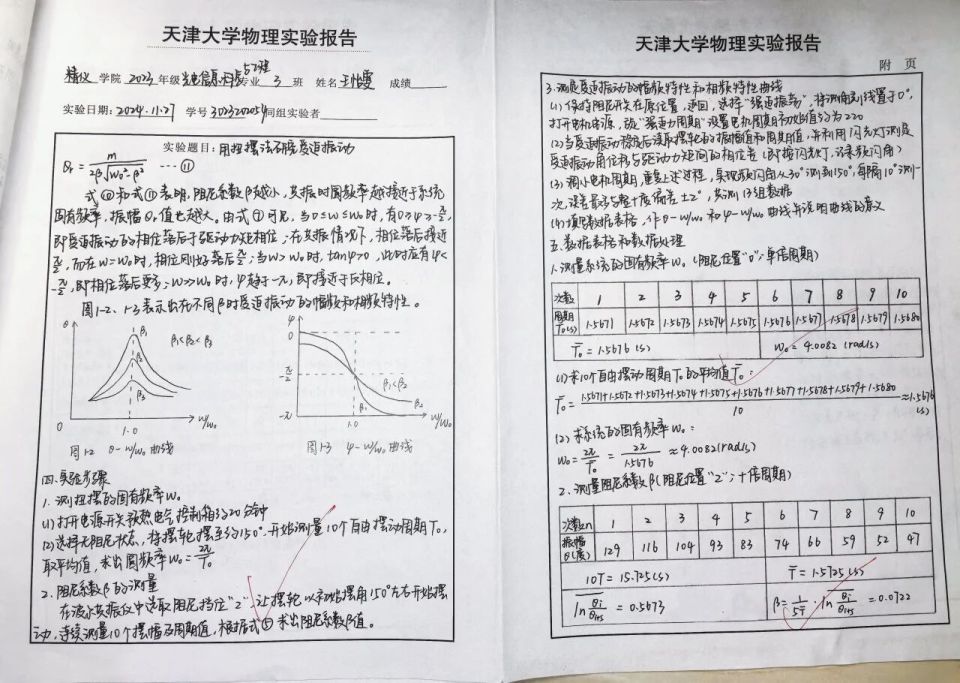 天津大学物理实验报告
精仪 学院 2023 年级 专业 3 班 姓名 成绩
实验日期: 2024.11.27 学号 同组实验者
实验题目: 用扭摆法研究受迫振动
θr = m / 2β√(ω₀²-β²) --- ⑪
式⑩和式⑪表明,阻尼系数β越小,共振时圆频率越接近于系统
固有频率,振幅θr值也越大。由式⑦可见,当0≤ω≤ω₀时,有0≥φ≥-π/2,
即受迫振动的相位落后于驱动力矩相位;在共振情况下,相位落后接近
π/2,而在ω=ω₀时,相位刚好落后π/2;当ω>ω₀时,tanφ>0,此时应有φ<
-π/2,即相位落后更多;ω>>ω₀时,φ趋于-π,即接近于反相位。
图1-2、1-3表示出在不同β时受迫振动的幅频和相频特性。
θ β₁ β₂ β₃ β₁<β₂<β₃ 1.0 ω/ω₀
φ 0 -π/2 -π β₁<β₂ β₁ β₂ 1.0 ω/ω₀
图1-2 θ-ω/ω₀曲线 图1-3 φ-ω/ω₀曲线
四.实验步骤
1.测扭摆的固有频率ω₀
(1)打开电源开关预热电气控制箱约20分钟
(2)选择无阻尼状态,将摆轮摆至约150°,开始测量10个自由摆动周期T₀,
取平均值,求出圆频率ω₀=2π/T₀
2.阻尼系数β的测量
在波尔共振仪中选取阻尼挡位"2",让摆轮以初始摆角150°左右开始摆
动,连续测量10个摆幅及周期值,根据式⑤求出阻尼系数β值。
天津大学物理实验报告
附 页
3.测定受迫振动的幅频特性和相频特性曲线
(1)保持阻尼开关在原位置,返回,选择"强迫振动",将测角刻线置于0°,
打开电机电源,旋"强迫力周期"设置电机周期初始值约为220
(2)当受迫振动稳定后读取摆轮的振幅值和周期值,并利用闪光灯测定
受迫振动角位移与驱动力矩间的相位差(即按闪光灯,记录频闪角)
(3)调小电机周期,重复上述过程,实现频闪角从30°测到150°,每隔10°测一
次,误差最多与整十度偏差±2°,共测13组数据
(4)填写数据表格,作θ-ω/ω₀和φ-ω/ω₀曲线并说明曲线的意义
五.数据表格和数据处理
1.测量系统的固有频率ω₀(阻尼位置"0";单倍周期)
次数 1 2 3 4 5 6 7 8 9 10
周期T₀(s) 1.5671 1.5672 1.5673 1.5674 1.5675 1.5676 1.5677 1.5678 1.5679 1.5680
T̄₀=1.5676(s) ω₀=4.0082(rad/s)
(1)求10个自由摆动周期T₀的平均值T̄₀:
T̄₀=(1.5671+1.5672+1.5673+1.5674+1.5675+1.5676+1.5677+1.5678+1.5679+1.5680)/10≈1.5676(s)
(2)求系统的固有频率ω₀:
ω₀=2π/T̄₀=2π/1.5676≈4.0082(rad/s)
2.测量阻尼系数β(阻尼位置"2";十倍周期)
次数n 1 2 3 4 5 6 7 8 9 10
振幅θ(度) 129 116 104 93 83 74 66 59 52 47
10T=15.725(s) T̄=1.5725(s)
ln θi/θi+5=0.5673 β=1/5T̄·ln θi/θi+5=0.0722